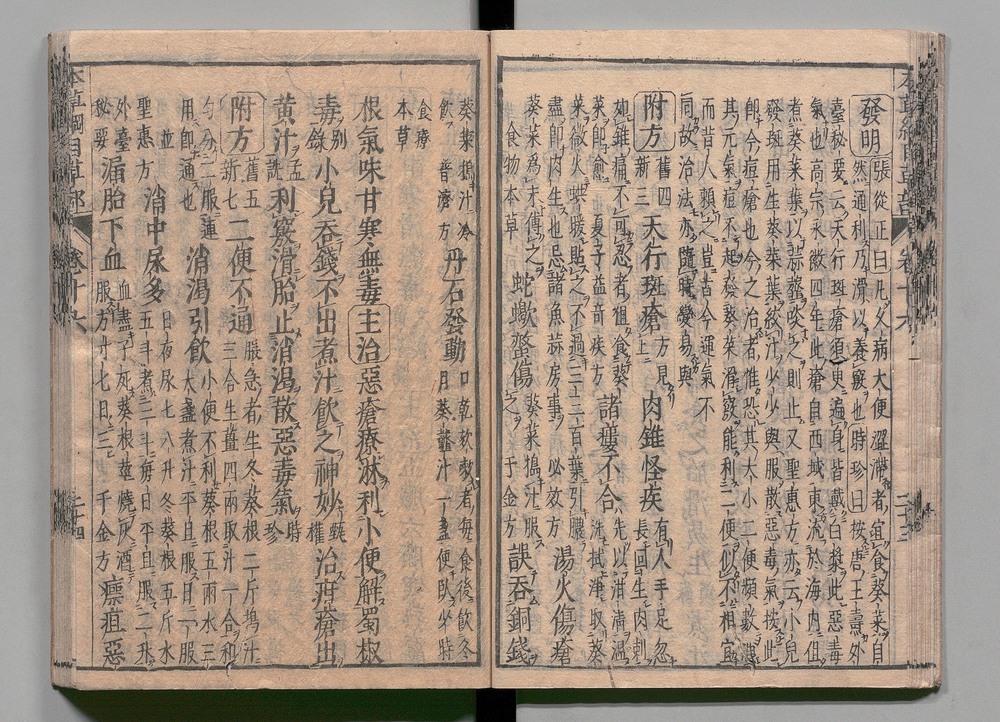 發明張從正曰凡久病大便澀滯者宜食葵菜自
然通利乃滑以養竅也時珍曰按唐王燾外
臺秘要云天行斑瘡須臾遍身皆戴白漿此惡毒
氣也高宗永徽四年此瘡自西域東流於海內但
煮葵菜葉以蒜虀啖之則止又聖惠方亦云小兒
發斑用生葵菜葉絞汁少少與服散惡毒氣按此
即今痘瘡也今之治者惟恐其大小二便頻數泄
其元氣痘不起發葵菜滑竅能利二便似不相宜
而昔人賴之豈古今運氣不
同故治法亦隨時變易與
附方舊四新三 天行斑瘡方見上 肉錐怪疾有人手足忽長回生肉刺
如錐痛不可忍者但食葵
菜即愈 夏子益奇疾方 諸瘻不合先以泔清溫洗拭淨取葵
菜微火烘暖貼之不過二三百葉引膿
盡即肉生也忌諸魚蒜房事 必效方 湯火傷瘡
葵菜為末傅之 食物本草 蛇蠍螫傷葵菜搗汁服之 千金方 誤吞銅錢
葵菜搗汁冷飲 普濟方 丹石發動口乾欬嗽者每食後飲冬月葵虀汁一盞便臥少時
食療本草
根氣味甘寒無毒主治惡瘡療淋利小便解蜀椒
毒別錄小兒吞錢不出煮汁飲之神妙甄權治疳瘡出
黃汁孟詵利竅滑胎止消渴散惡毒氣時珍
附方舊五新七 二便不通脹急者生冬葵根二斤搗汁三合生薑四兩取汁一合和
勻分二服連
用即通也 消渴引飲小便不利葵根五兩水三大盞煮汁平旦服日一服
並
聖惠方 消中尿多日夜尿七八升冬葵根五斤水五斗煮三斗每日平旦服二升
外臺秘要 漏胎下血血盡子死葵根莖燒灰酒服方寸匕日三 千金方 瘭疽惡